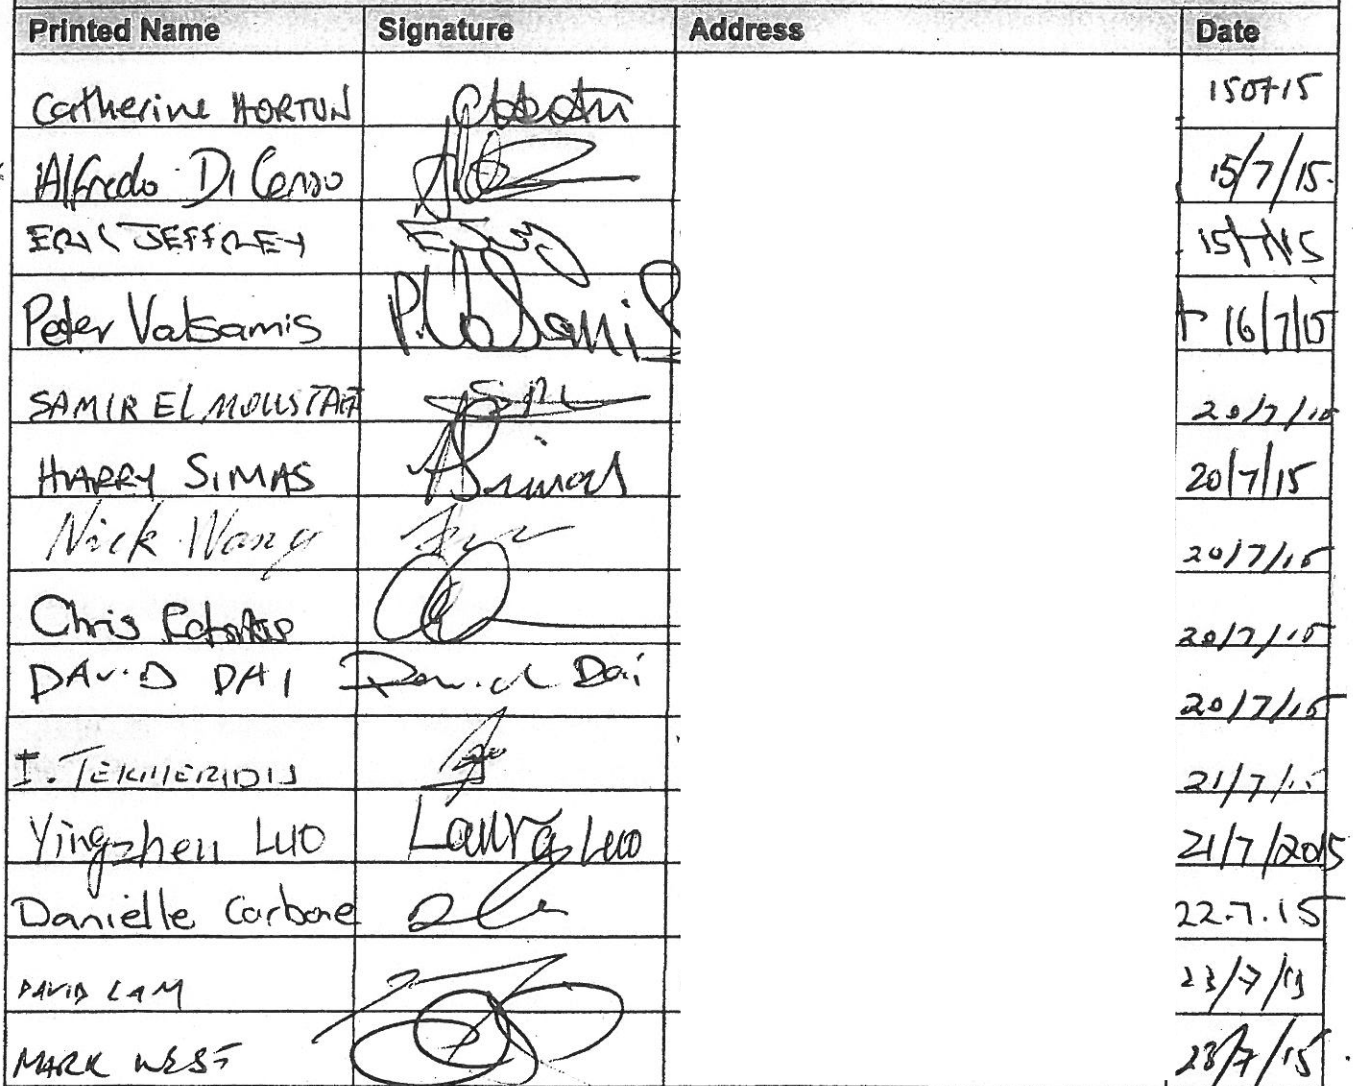 Printed Name Signature Address Date
Catherine HORTON 150715
Alfredo Di Censo 15/7/15
ERIC JEFFREY 15/7/15
Peter Valsamis P. Valsamis 16/7/15
SAMIR EL MOUSTAFA 20/7/15
HARRY SIMAS HSimas 20/7/15
Nick Wang 20/7/15
Chris 20/7/15
DAVID DAI David Dai 20/7/15
I. TEKMERIDIS 21/7/15
Yingzhen LUO Laura Luo 21/7/2015
Danielle Carbone 22.7.15
DAVID LAM 23/7/15
MARK WEST 23/7/15